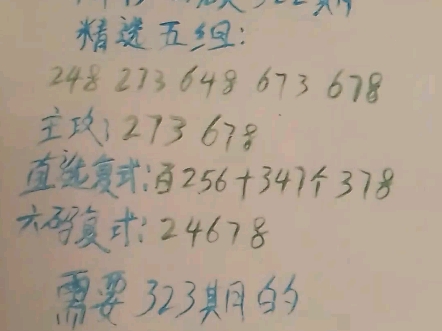 322期
精选五组:
248 273 648 673 678
主攻:273 678
直选复式:百256十347个378
六码复式:24678
需要323期的